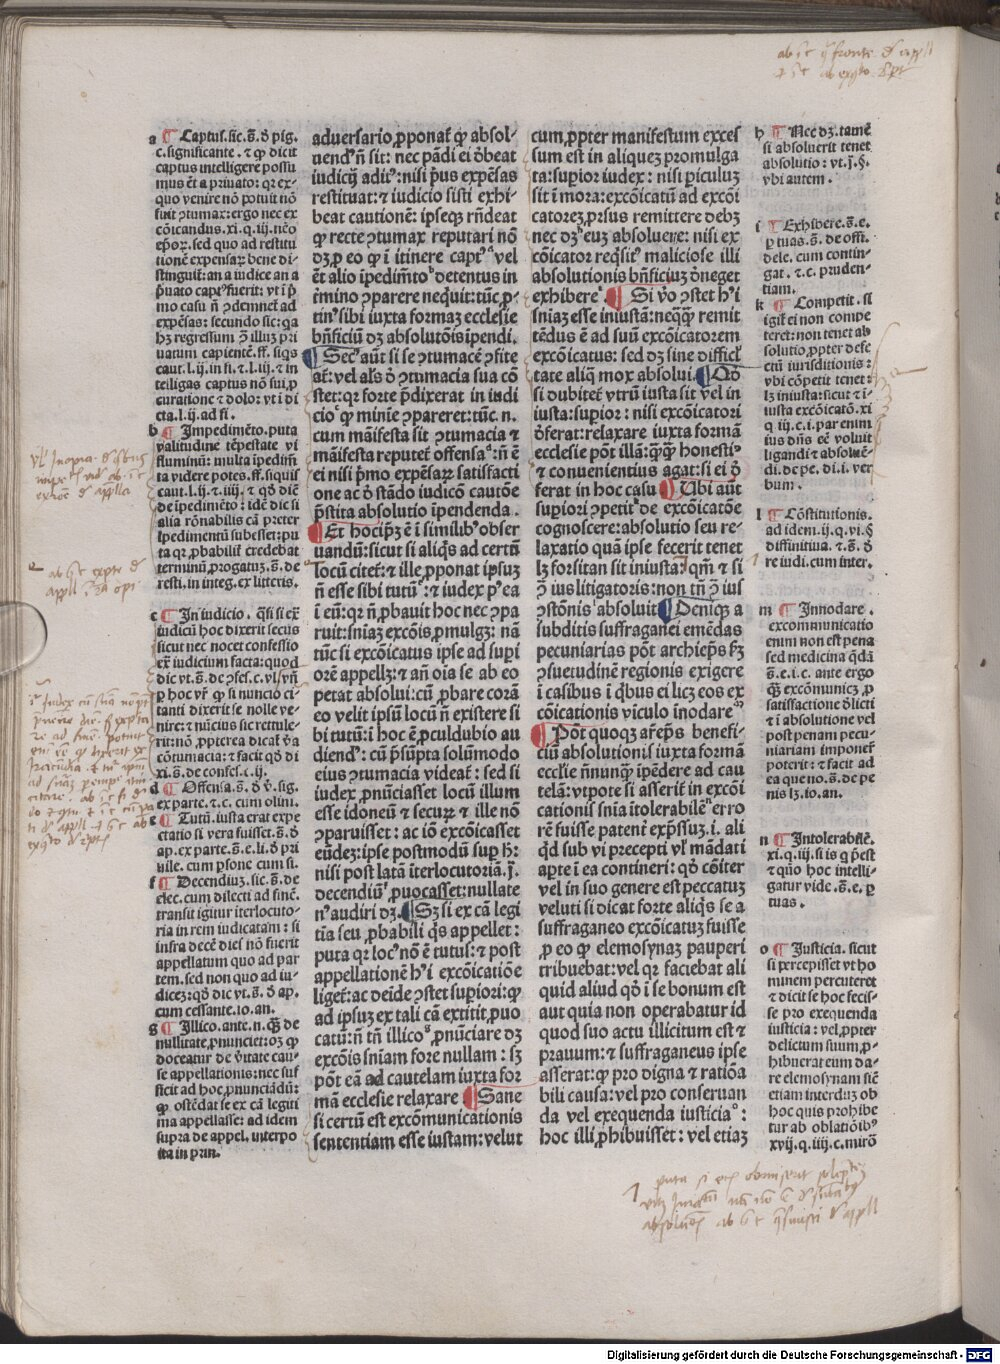 a ¶ Captus. sic. s̄. ð pig.
c. significante. ⁊ ꝙ dicit
captus intelligere possu
mus ēt a priuato: qꝛ ex
quo venire nō potuit nō
fuit ꝯtumax: ergo nec ex
cōicandus. xi. q. iij. nēo
ep̄oꝝ. sed quo ad restitu
tionē expensaꝝ bene di-
stinguit: an a iudice an a
p̄uato capꝰ fuerit: vt ī p̄
mo casu n̄ ꝯdemnet ad
expēsas: secundo sic: qa
hꝫ regressum ꝯ̄ illuꝫ pri
uatum capientē. ff. siqs
caut. l. ij. in fi. ⁊ l. iij. ⁊ in
telligas captus nō sui, ꝓ
curatione ⁊ dolo: vt ī di
cta. l. ij. ad fi.
b ¶ Impedimēto. puta
valitudine tēpestate vi
fluminū: multa īpedim̄
ta videre potes. ff. siquis
caut. l. ij. ⁊ iiij. ⁊ qð diē
de īpedimēto: idē dic si
alia rōnabilis cā preter
īpedimentū subesset: pu
ta qꝛ ꝓbabilī credebat
terminū ꝓrogatuꝫ. s̄. de
resti. in integ. ex litteris.
c ¶ In iudicio. q̄si si ex̄
iudiciū hoc dixerit secus
sicut nec nocet confessio
ex̄ iudicium facta: quod
dic vt. s̄. de ꝯfes. c. vl. s̄m
ꝑ hoc vr̄ ꝙ si nuncio ci-
tanti dixerit se nolle ve-
nire: ⁊ nūcius sic rettule-
rit: nō ꝓpterea dicat̄ v̄a
cōtumacia: ⁊ facit qð di
xi. s̄. de confes. c. ij.
d ¶ Offensa. s̄. ð ṽ. sig.
ex parte. ⁊. c. cum olim.
e ¶ Tutū. iusta erat expe
ctatio si vera fuisset. s̄. ð
ap. ex parte. s̄. e. li. ð pri
uile. cum ꝑsone cum si.
f ¶ Decendiuꝫ. sic. s̄. de
elec. cum dilecti ad finē.
transit igitur iterlocuto-
ria in rem iudicatam: si
infra decē dies nō fuerit
appellatum quo ad par
tem. sed non quo ad iu-
diceꝫ: qð dic vt. s̄. ð ap.
cum cessante. io. an.
g ¶ Illico. ante. n. q̄ꝫ de
nullitate, ꝓnunciet: oꝫ ꝙ
doceatur de v̄itate cau-
se appellationis: nec suf
ficit ad hoc, ꝓnunciādū:
ꝙ ostēdat se ex cā legiti
ma appellasse: ad idem
supra de appel. interpo
ita in prin.
aduersario, ꝓponat̄ ꝙ absol-
uend̄ n̄ sit: nec pādi ei ðbeat
iudicij adiꝰ: nisi p̄us expēsas
restituat: ⁊ iudicio sisti exhi-
beat cautionē: ipseqꝫ rn̄deat
ꝙ recte ꝯtumax reputari nō
dꝫ, ꝓ eo ꝙ ī itinere captꝰ vel
ēt alio īpedim̄to detentus in
t̄mino ꝯparere nequit: tūc, ꝓ-
tinꝰ sibi iuxta formaꝫ ecclesie
bn̄ficiū dꝫ absolutōis īpendi.
¶ Secꝰ aūt si se ꝯtumacē ꝯfite
at̄: vel al̄s ð ꝯtumacia sua cō
stet: qꝛ forte p̄dixerat in iudi
cioᶜ ꝙ minīe ꝯpareret: tūc. n.
cum māifesta sit ꝯtumacia ⁊
māifesta reputet̄ offensaᵈ: n̄ ē
ei nisi p̄mo expēsaꝝ satisfacti
one ac ð stādo iudicō cautōe
p̄stita absolutio īpendenda.
¶ Et hocip̄ꝫ ē ī similibꝰ obser
uandū: sicut si aliqs ad certū
locū citet̄: ⁊ ille, ꝓponat ipsuꝫ
n̄ esse sibi tutū: ⁊ iudex ꝑ ea
ī eū: qꝛ n̄ ꝓbauit hoc nec ꝯpa
ruit: sn̄iaꝫ excōis, ꝓmulgꝫ: nā
tūc si excōicatus ipse ad supi
orē appellꝫ: ⁊ an̄ oīa se ab eo
petat absolui: cū ꝓbare corā
eo velit ipsū locū n̄ existere si
bi tutū: ī hoc ē, ꝓculdubio au
diendꝰ: cū p̄sūpta solūmodo
eius ꝯtumacia videat̄: sed si
iudex, ꝓnūciasset locū illum
esse idoneū ⁊ securꝫ ⁊ ille nō
ꝯparuisset: ac iō excōicasset
eūdeꝫ: ipse postmodū suꝑ h̄:
nisi post latā īterlocutoriā. j̄.
decendiūᶠ, ꝓuocasset: nullate
nꝰ audiri dꝫ. ¶ Sꝫ si ex cā legi
tīa seu ꝓbabili qs appellet:
puta qꝛ locꝰ nō ē tutus: ⁊ post
appellationē hꝰi excōicatiōe
liget̄: ac deīde ꝯstet suꝑiori: ꝙ
ad ipsuꝫ ex tali cā extitit, ꝓuo
catū: n̄ tn̄ illico, ꝓnūciare dꝫ
excōis sn̄iam fore nullam: sꝫ
pōt eā ad cautelam iuxta for
mā ecclesie relaxare ¶ Sane
si certū est excōmunicationis
sententiam esse iustam: velut
cum, ꝓpter manifestum exces
sum est in aliqueꝫ promulga
ta: superior iudex: nisi ꝑiculuꝫ
sit ī mora: excōicatū ad excōi
catoreꝫ, ꝓrsus remittere debꝫ
nec dꝫʰ euꝫ absoluere: nisi ex
cōicator reqsitꝰ maliciose illi
absolutionis bn̄ficiuꝫ ðneget
exhibereⁱ ¶ Si ṽo ꝯstet hꝰi
sn̄iaꝫ esse iniustā: neqꝗ̄ꝫ remit
tēdus ē ad suū excōicatorem
excōicatus: sed dꝫ sine difficl̄
tate aliq̄ mox absolui. ¶ Qð
si dubitet̄ vtrū iusta sit vel in
iusta: suꝑior: nisi excōicatori
ðferat: relaxare iuxta formā
ecclesie pōt illā: q̄ꝗ̄ꝫ honestiꝰ
⁊ conuenientius agat: si ei ð
ferat in hoc casu ¶ Ubi aūt
suꝑiori ꝯpetit de excōicatōe
cognoscere: absolutio seu re-
laxatio quā ipse fecerit tenet
lꝫ forsitan sit iniusta: qm̄ ⁊ si
ꝯ̄ ius litigatoris: non tn̄ ꝯ̄ ius
ꝯstōnis absoluit ¶ Deniqꝫ a
subditis suffraganei emēdas
pecuniarias pōt archiep̄s ẜꝫ
ꝯsuetudinē regionis exigere
ī casibus ī qbus ei licꝫ eos ex
cōicationis vīculo īnodareᵐ
¶ Pōt quoqꝫ arep̄s benefi-
ciū absolutionis iuxta formā
ecclīe n̄nunq̄ꝫ īpēdere ad cau
telā: vtpote si asserit in excōi
cationis sn̄ia ītolerabilēⁿ erro
rē fuisse patenī exp̄ssuꝫ. i. ali
qð sub vi precepti vl̄ mādati
aꝑte ī ea contineri: qð cōiter
vel in suo genere est peccatuꝫ
veluti si dicat forte aliqs se a
suffraganeo excōicatuꝫ fuisse
ꝓ eo ꝙ elemosynaꝫ pauperi
tribuebat: vel qꝛ faciebat ali
quid aliud qð ī se bonum est
aut quia non operabatur id
quod suo actu illicitum est ⁊
prauum: ⁊ suffraganeus ipse
asserat: ꝙ pro digna ⁊ ratiōa
bili causa: vel pro conseruan
da vel exequenda iusticiaᵒ:
hoc illi, ꝓhibuisset: vel etiaꝫ
h ¶ Nec dꝫ. tamē
si absoluerit tenet
absolutio: vt. j̄. §.
vbi autem.
i ¶ Exhibere. s̄. e.
ꝑ tuas. s̄. de offi.
dele. cum contin-
gat. ⁊. c. pruden-
tiam.
k ¶ Competit. si
igit̄ ei non compe
teret: non tenet ab
solutio, ꝓpter defe
ctū iurisditionis:
vbi cōpetit tenet:
lꝫ iniusta: sicut ⁊ ī-
iusta excōicatō. xi
q. iij. c. i. par enim
ius dn̄s eē voluit
ligandi ⁊ absoluē-
di. de pe. di. i. ver
bum.
l ¶ Cōstitutionis.
ad idem. ij. q. vi. §
diffinitiua. ⁊. s̄. ð
re iudi. cum inter.
m ¶ Innodare.
excommunicatio
enim non est pena
sed medicina q̄dā
s̄. e. i. c. ante ergo
q̄ꝫ excōmunicꝫ, ꝓ
satisfactione ðlicti
⁊ ī absolutione vel
post penam pecu-
niariam imponer̄
poterit: ⁊ facit ad
ea que no. s̄. de pe
nis lꝫ. io. an.
n ¶ Intolerabilē.
xi. q. iij. si is q p̄est
⁊ q̄uo hoc intelli-
gatur vide. s̄. e. ꝑ
tuas.
o ¶ Justicia. sicut
si precepisset vt ho
minem percuteret
⁊ dicit se hoc fecis-
se pro exequenda
iusticia: vel, ꝓpter
delictum suum, ꝓ-
hibuerat eum da-
re elemosynam sic̄
etiam interduꝫ ob
hoc quis prohibe
tur ab oblatiōibꝰ
xvij. q. iiij. c. mirō
Digitalisierung gefördert durch die Deutsche Forschungsgemeinschaft - DFG